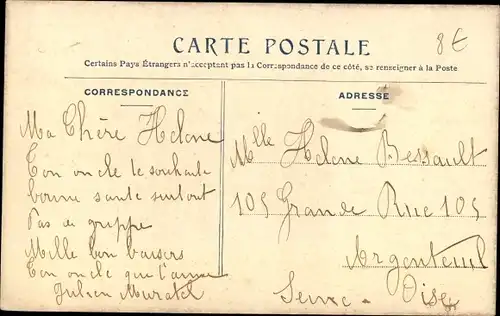 CARTE POSTALE
8€
Certains Pays Étrangers n'acceptant pas la Correspondance de ce côté, se renseigner à la Poste
CORRESPONDANCE
Ma Chère Helene
Ton oncle te souhaite
bonne sante surtout
Pas de grippe
Mille bon baisers
Ton oncle qui t'aime
Julien Muratel
ADRESSE
Mlle Helene Bessault
105 Grande Rue 105
Argenteuil
Seine - Oise